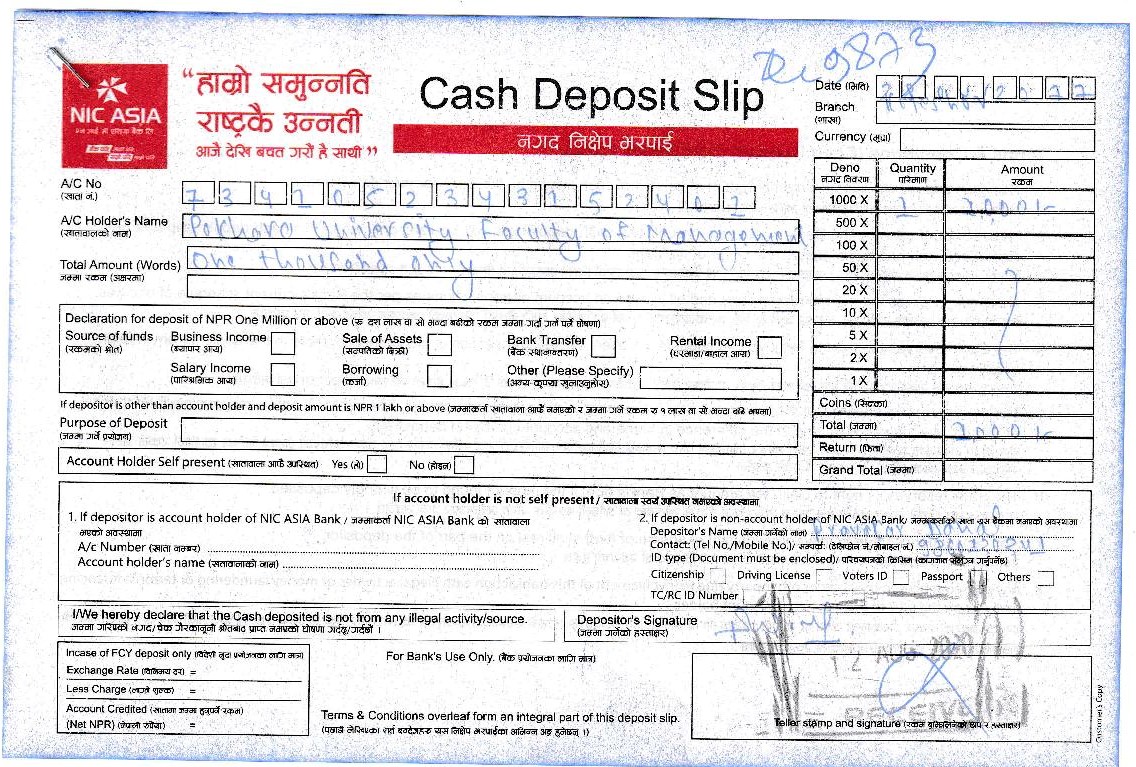 NIC ASIA
“हाम्रो समुन्नति
राष्ट्रकै उन्नती
आजै देखि बचत गरौं है साथी”
Cash Deposit Slip
नगद निक्षेप भरपाई
Date (मिति)
Branch
(शाखा)
Currency (मुद्रा)
A/C No
(खाता नं.)
7 3 4 1 0 5 2 3 4 3 1 5 2 4 0 2
A/C Holder's Name
(खातावालाको नाम)
Pokhara University, Faculty of Management
Total Amount (Words)
जम्मा रकम (अक्षरमा)
One thousand only
Deno Quantity Amount
नगद विवरण परिमाण रकम
1000 X 1 1000/-
500 X
100 X
50 X
20 X
10 X
5 X
2 X
1 X
Coins (सिक्का)
Total (जम्मा) 1000/-
Return (फिर्ता)
Grand Total (जम्मा)
Declaration for deposit of NPR One Million or above (रु दश लाख वा सो भन्दा बढीको रकम जम्मा गर्दा गर्नु पर्ने घोषणा)
Source of funds Business Income Sale of Assets Bank Transfer Rental Income
(रकमको श्रोत) (ब्यापार आय) (सम्पतिको बिक्री) (बैंक स्थानान्तरण) (घरभाडा/बहाल आय)
Salary Income Borrowing Other (Please Specify)
(पारिश्रमिक आय) (कर्जा)
If depositor is other than account holder and deposit amount is NPR 1 lakh or above
Purpose of Deposit
(जम्मा गर्ने प्रयोजन)
Account Holder Self present (खातावाला आफै उपस्थित) Yes (हो) No (होइन)
If account holder is not self present / खातावाला स्वयं उपस्थित नभएको अवस्थामा
1. If depositor is account holder of NIC ASIA Bank / जम्माकर्ता NIC ASIA Bank को खातावाला
भएको अवस्थामा
A/c Number (खाता नम्बर)
Account holder's name (खातावालाको नाम)
2. If depositor is non-account holder of NIC ASIA Bank/ जम्माकर्ताको खाता यस बैंकमा नभएको अवस्थामा
Depositor's Name (जम्मा गर्नेको नाम)
Contact: (Tel No./Mobile No.)/ सम्पर्क: (टेलिफोन नं./मोबाइल नं.)
ID type (Document must be enclosed)/
Citizenship Driving License Voters ID Passport Others
TC/RC ID Number
I/We hereby declare that the Cash deposited is not from any illegal activity/source.
Depositor's Signature
(जम्मा गर्नेको हस्ताक्षर)
Incase of FCY deposit only (विदेशी मुद्रा प्रयोजनका लागि मात्र)
Exchange Rate (विनिमय दर) =
Less Charge (लाग्ने शुल्क) =
Account Credited (खातामा जम्मा हुनुपर्ने रकम)
(Net NPR) (नेपाली रुपैंया) =
For Bank's Use Only. (बैंक प्रयोजनका लागि मात्र)
Terms & Conditions overleaf form an integral part of this deposit slip.
12 AUG 2020
RECEIVED
Teller stamp and signature
Customer's Copy